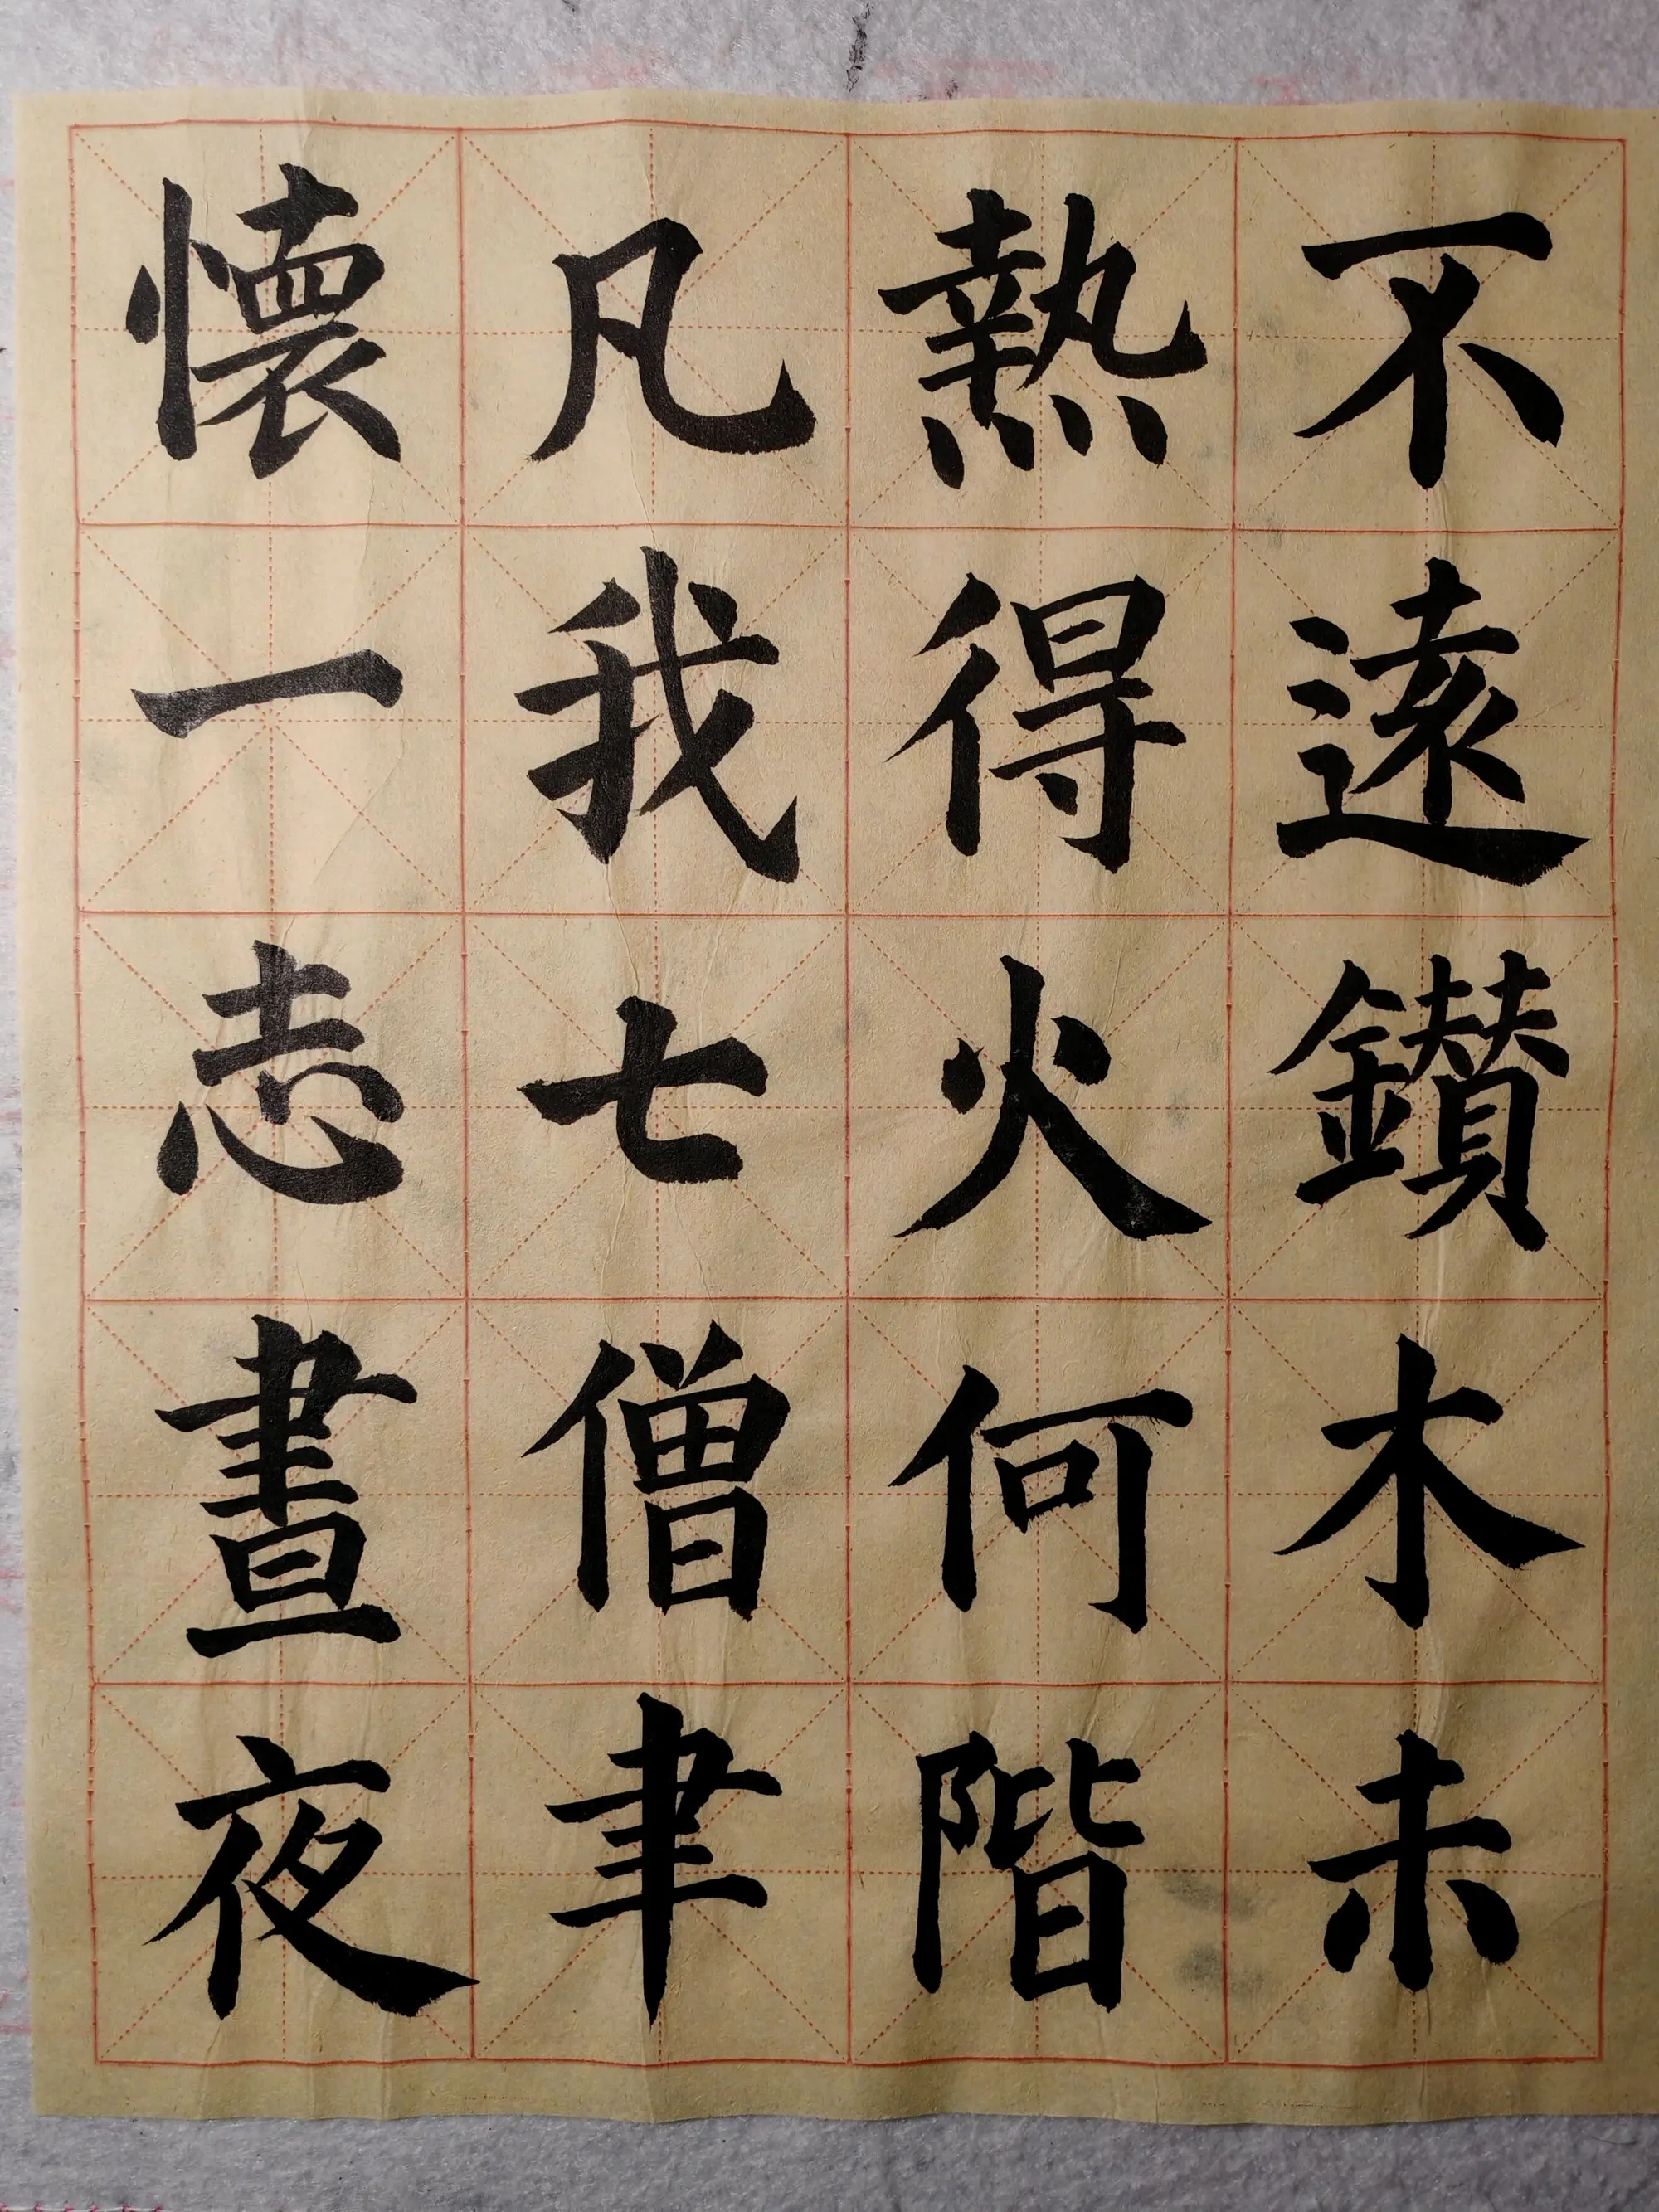 不遠鑚木未
熱得火何階
凡我七僧聿
懷一志晝夜